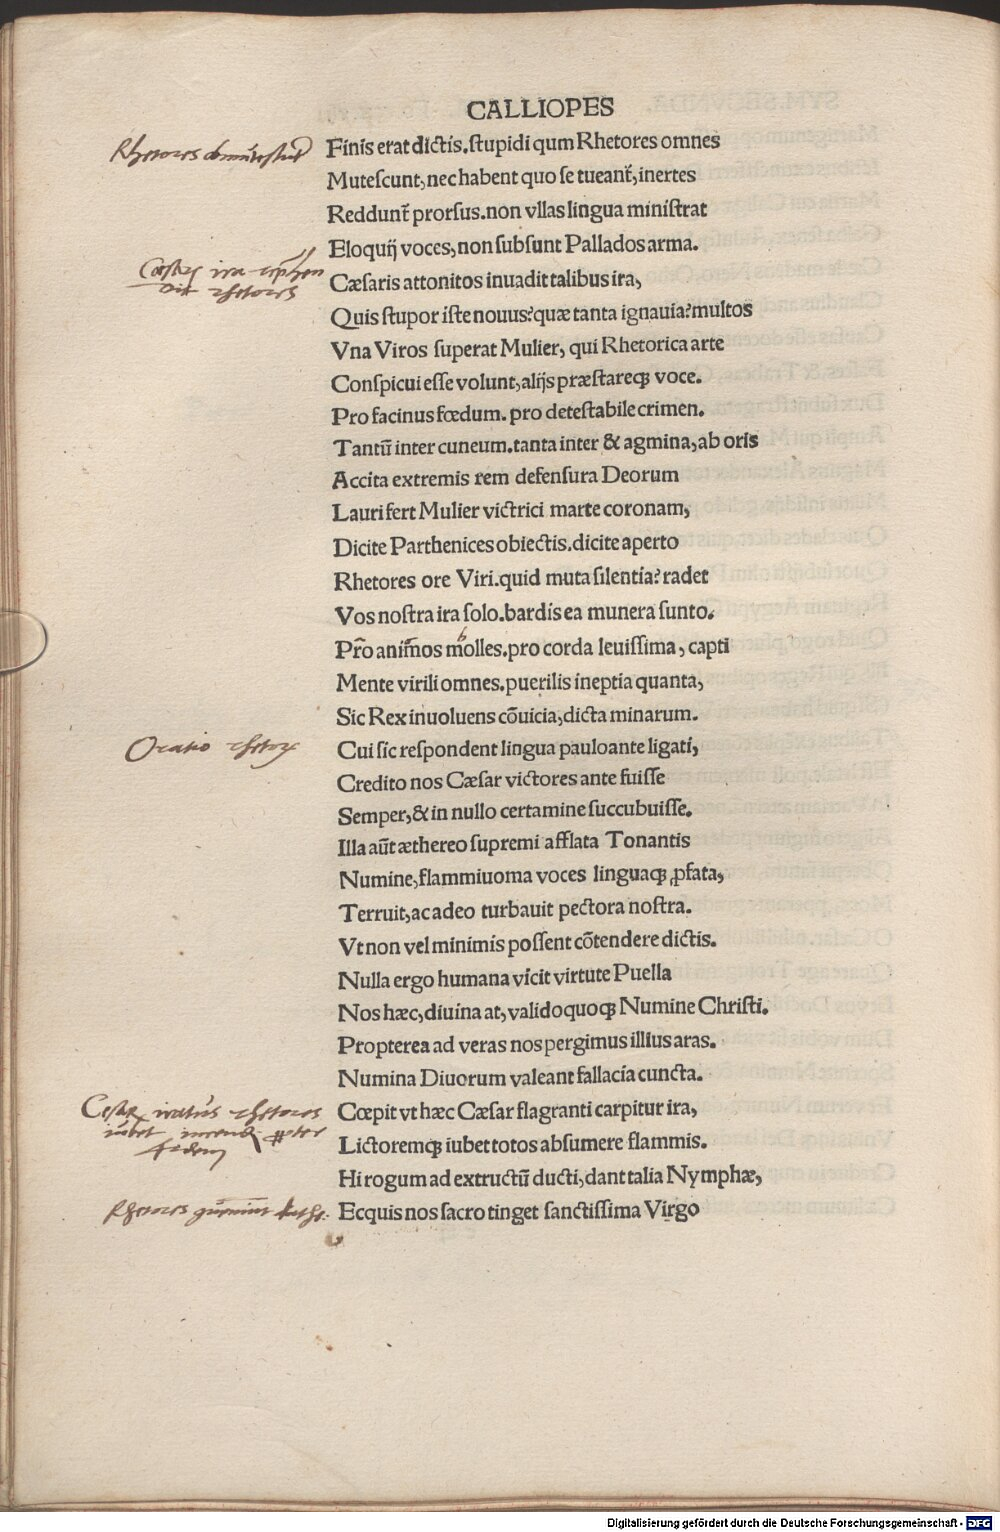 CALLIOPES
Rhetores obmutescunt
Finis erat dictis.stupidi qum Rhetores omnes
Mutescunt, nec habent quo se tueant̃, inertes
Reddunt̃ prorsus.non vllas lingua ministrat
Eloquij voces, non subsunt Pallados arma.
Cæsaris ira
rhetores
Cæsaris attonitos inuadit talibus ira,
Quis stupor iste nouus? quæ tanta ignauia? multos
Vna Viros superat Mulier, qui Rhetorica arte
Conspicui esse volunt, alijs præstareqꝫ voce.
Pro facinus fœdum. pro detestabile crimen.
Tantũ inter cuneum.tanta inter & agmina, ab oris
Accita extremis rem defensura Deorum
Lauri fert Mulier victrici marte coronam,
Dicite Parthenices obiectis.dicite aperto
Rhetores ore Viri.quid muta silentia? radet
Vos nostra ira solo.bardis ea munera sunto.
Pr̃o anim̃os m̃olles.pro corda leuissima, capti
Mente virili omnes.puerilis ineptia quanta,
Sic Rex inuoluens cõuicia, dicta minarum.
Oratio rhetoꝝ
Cui sic respondent lingua pauloante ligati,
Credito nos Cæsar victores ante fuisse
Semper, & in nullo certamine succubuisse.
Illa aũt æthereo supremi afflata Tonantis
Numine, flammiuoma voces linguaqꝫ ꝓfata,
Terruit, ac adeo turbauit pectora nostra.
Vt non vel minimis possent cõtendere dictis.
Nulla ergo humana vicit virtute Puella
Nos hæc, diuina at, valido quoqꝫ Numine Christi.
Propterea ad veras nos pergimus illius aras.
Numina Diuorum valeant fallacia cuncta.
Cesar iratus rhetores
iubet
fidem
Cœpit vt hæc Cæsar flagranti carpitur ira,
Lictoremqꝫ iubet totos absumere flammis.
Hi rogum ad extructũ ducti, dant talia Nymphæ,
Rhetores
Ecquis nos sacro tinget sanctissima Virgo
Digitalisierung gefördert durch die Deutsche Forschungsgemeinschaft - DFG